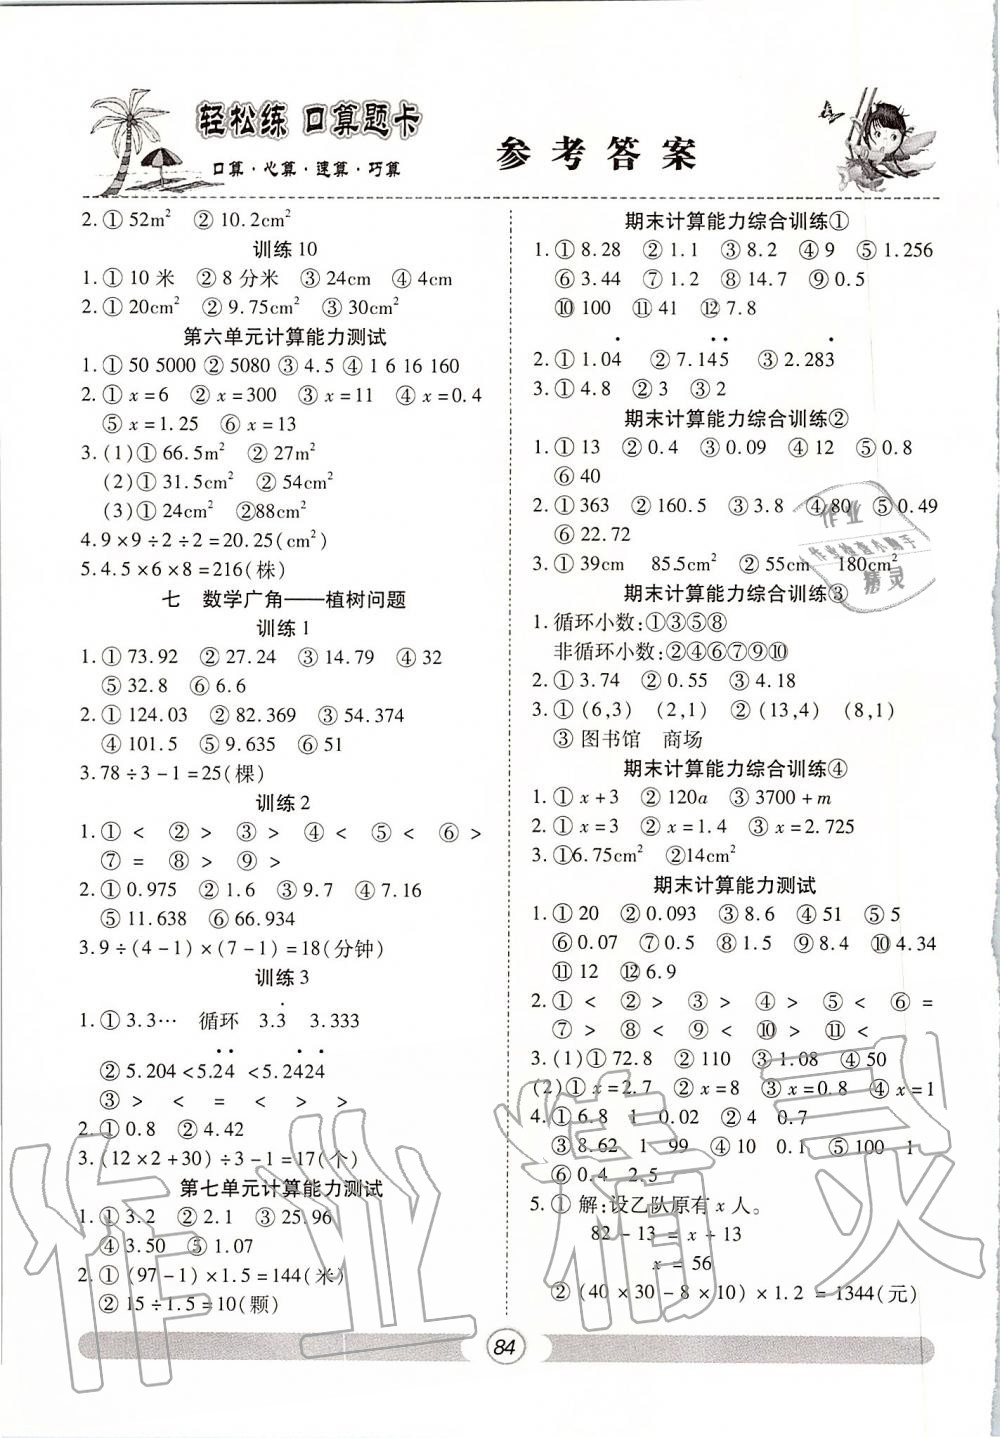 轻松练 口算题卡
口算·心算·速算·巧算
参考答案
2.① 52m² ② 10.2cm²
训练10
1.① 10 米 ② 8 分米 ③ 24cm ④ 4cm
2.① 20cm² ② 9.75cm² ③ 30cm²
第六单元计算能力测试
1.① 50 5000 ② 5080 ③ 4.5 ④ 1 6 16 160
2.① x=6 ② x=300 ③ x=11 ④ x=0.4
⑤ x=1.25 ⑥ x=13
3.(1)① 66.5m² ② 27m²
(2)① 31.5cm² ② 54cm²
(3)① 24cm² ②88cm²
4.9×9÷2÷2=20.25(cm²)
5.4.5×6×8=216(株)
七 数学广角——植树问题
训练1
1.① 73.92 ② 27.24 ③ 14.79 ④ 32
⑤ 32.8 ⑥ 6.6
2.① 124.03 ② 82.369 ③ 54.374
④ 101.5 ⑤ 9.635 ⑥ 51
3.78÷3-1=25(棵)
训练2
1.① < ② > ③ > ④ < ⑤ < ⑥ >
⑦ = ⑧ > ⑨ >
2.① 0.975 ② 1.6 ③ 9.7 ④ 7.16
⑤ 11.638 ⑥ 66.934
3.9÷(4-1)×(7-1)=18(分钟)
训练3
1.① 3.3… 循环 3.3̇ 3.333
② 5.204<5.2̇4̇<5.242̇4̇
③ > < = < > >
2.① 0.8 ② 4.42
3.(12×2+30)÷3-1=17(个)
第七单元计算能力测试
1.① 3.2 ② 2.1 ③ 25.96
④ 3.50 ⑤ 1.07
2.① (97-1)×1.5=144(米)
② 15÷1.5=10(颗)
期末计算能力综合训练①
1.① 8.28 ② 1.1 ③ 8.2 ④ 9 ⑤ 1.256
⑥ 3.44 ⑦ 1.2 ⑧ 14.7 ⑨ 0.5
⑩ 100 ⑪ 41 ⑫ 7.8
2.① 1.04̇ ② 7.1̇45̇ ③ 2.283̇
3.① 4.8 ② 3 ③ 2
期末计算能力综合训练②
1.① 13 ② 0.4 ③ 0.09 ④ 12 ⑤ 0.8
⑥ 40
2.① 363 ② 160.5 ③ 3.8 ④ 80 ⑤ 0.49
⑥ 22.72
3.① 39cm 85.5cm² ② 55cm 180cm²
期末计算能力综合训练③
1.循环小数:①③⑤⑧
非循环小数:②④⑥⑦⑨⑩
2.① 3.74 ② 0.55 ③ 4.18
3.① (6,3) (2,1) ② (13,4) (8,1)
③ 图书馆 商场
期末计算能力综合训练④
1.① x+3 ② 120a ③ 3700+m
2.① x=3 ② x=1.4 ③ x=2.725
3.①6.75cm² ②14cm²
期末计算能力测试
1.① 20 ② 0.093 ③ 8.6 ④ 51 ⑤ 5
⑥ 0.07 ⑦ 0.5 ⑧ 1.5 ⑨ 8.4 ⑩ 4.34
⑪ 12 ⑫ 6.9
2.① < ② > ③ > ④ > ⑤ < ⑥ =
⑦ > ⑧ < ⑨ < ⑩ > ⑪ <
3.(1)① 72.8 ② 110 ③ 1.08 ④ 50
(2)① x=2.7 ② x=8 ③ x=0.8 ④ x=1
4.① 6.8 1 0.02 ② 4 0.7
③ 8.62 1 99 ④ 10 0.1 ⑤ 100 1
⑥ 0.4 2.5
5.① 解:设乙队原有 x 人。
82-13=x+13
x=56
② (40×30-8×10)×1.2=1344(元)
作业
作业检查小助手
精灵
作业精灵
84